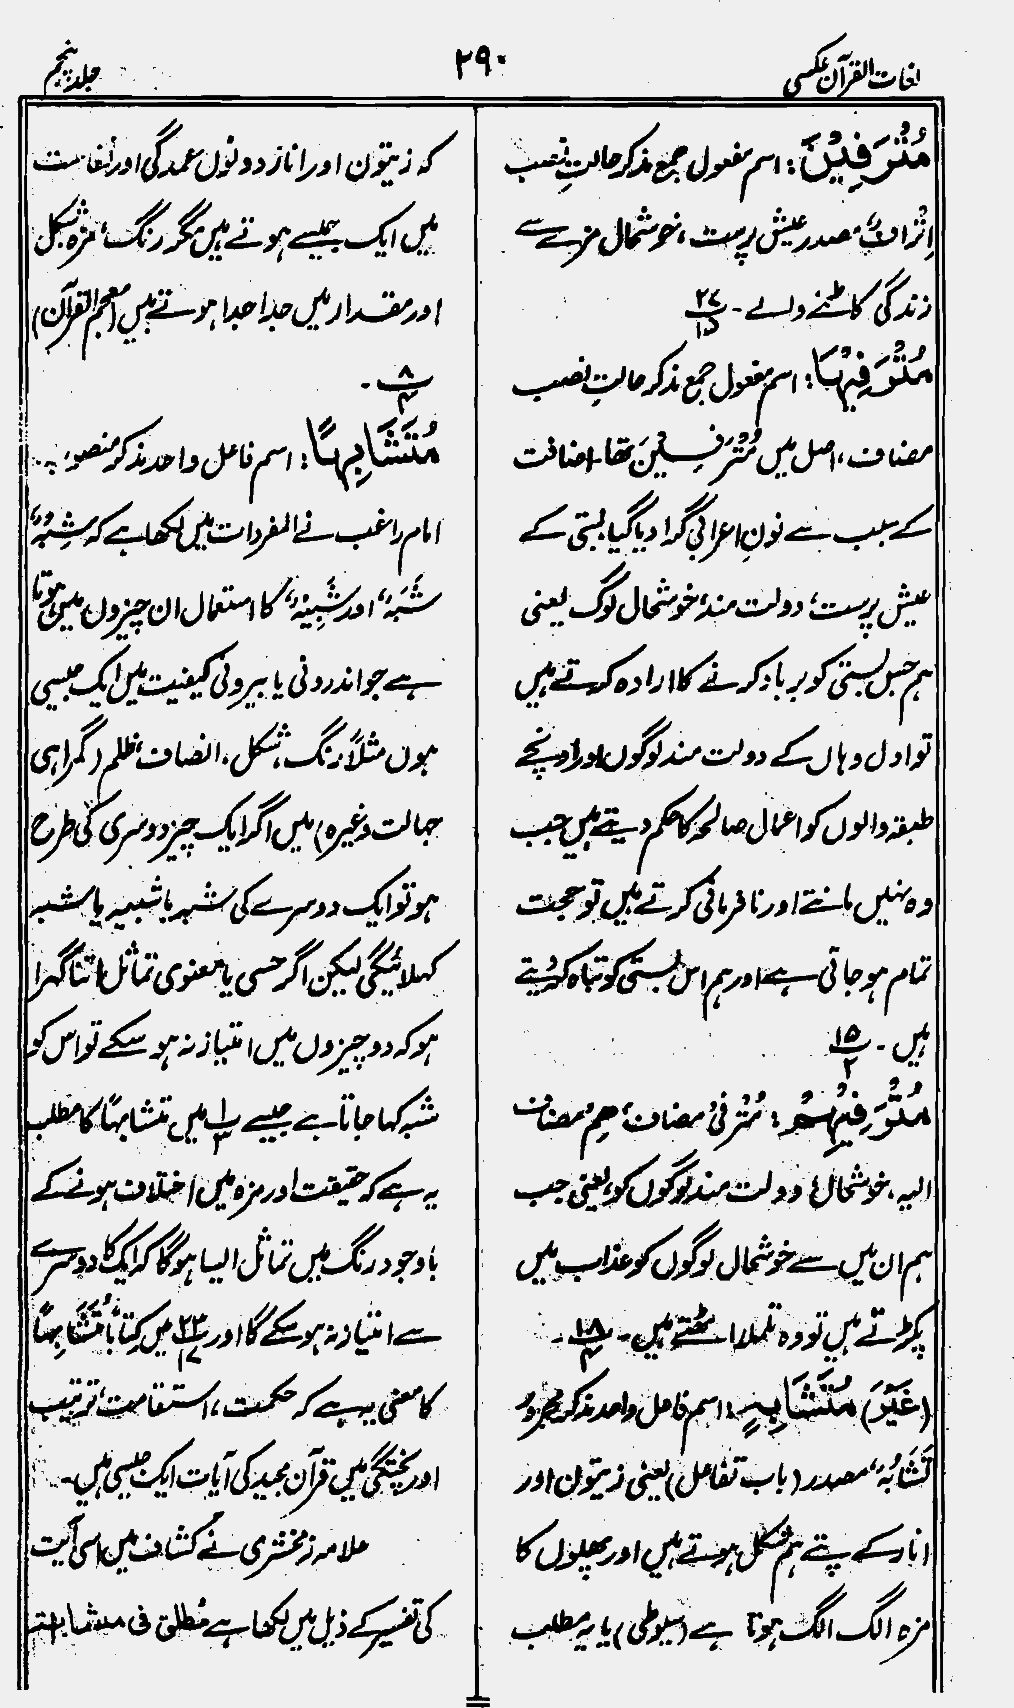 لغات القرآن عکسی
۲۹۰
جلد پنجم
مُتْرَفِیْنَ: اسم مفعول جمع مذکر حالتِ نصب
اِتْرَافٌ، مصدر عیش پرست، خوشحال مزے سے
زندگی کاٹنے والے ۔ ۲۷/۱۵
مُتْرَفِیْہَا: اسم مفعول جمع مذکر حالتِ نصب
مضاف، اصل میں مُتْرَفِیْنَ تھا۔ اضافت
کے سبب سے نونِ اعرابی گرا دیا گیا، بستی کے
عیش پرست، دولت مند، خوشحال لوگ یعنی
ہم جس بستی کو برباد کرنے کا ارادہ کرتے ہیں
تو اول وہاں کے دولت مند لوگوں اور اونچے
طبقہ والوں کو اعمال صالحہ کا حکم دیتے ہیں جب
وہ نہیں مانتے اور نافرمانی کرتے ہیں تو حجت
تمام ہو جاتی ہے اور ہم اس بستی کو تباہ کر دیتے
ہیں ۔ ۱۵/۲
مُتْرَفِیْہِمْ: مُتْرَفِیْ مضاف، ھِمْ مضاف
الیہ، خوشحال، دولت مند لوگوں کو، یعنی جب
ہم ان میں سے خوشحال لوگوں کو عذاب میں
پکڑتے ہیں تو وہ تلملا اٹھتے ہیں ۔ ۱۸/۴ ۔
(غَیْرَ) مُتَشَابِہٍ: اسم فاعل واحد مذکر مجرور
تَشَابُہٌ، مصدر (باب تفاعل) یعنی زیتون اور
انار کے پتے ہم شکل ہوتے ہیں اور پھلوں کا
مزہ الگ الگ ہوتا ہے (سیوطی) یا یہ مطلب
کہ زیتون اور انار دونوں عمدگی اور نفاست
میں ایک جیسے ہوتے ہیں مگر رنگ، مزہ شکل
اور مقدار میں جدا جدا ہوتے ہیں (معجم القرآن)
۸/۴ ۔
مُتَشَابِہًا: اسم فاعل واحد مذکر منصوب۔
امام راغب نے المفردات میں لکھا ہے کہ شِبْہٌ،
شَبَہٌ، اور شَبِیْہٌ، کا استعمال ان چیزوں میں ہوتا
ہے جو اندرونی یا بیرونی کیفیت میں ایک جیسی
ہوں مثلاً رنگ، شکل، انصاف، ظلم (گمراہی
جہالت وغیرہ) میں اگر ایک چیز دوسری کی طرح
ہو تو ایک دوسرے کی شبہ یا شبیہ یا شبہ
کہلائیگی لیکن اگر حسی یا معنوی تماثل اتنا گہرا
ہو کہ دو چیزوں میں امتیاز نہ ہو سکے تو اس کو
شبہ کہا جاتا ہے جیسے ۱/۳ میں متشابہًا کا مطلب
یہ ہے کہ حقیقت اور مزہ میں اختلاف ہونے کے
باوجود رنگ میں تماثل ایسا ہوگا کہ ایک کا دوسرے
سے امتیاز نہ ہو سکے گا اور ۲۳/۱۷ میں کِتَابًا مُّتَشَابِہًا
کا معنی یہ ہے کہ حکمت، استقامت، ترتیب
اور پختگی میں قرآن مجید کی آیات ایک جیسی ہیں۔
علامہ زمخشری نے کشاف میں اسی آیت
کی تفسیر کے ذیل میں لکھا ہے مُطلق فی مشابہتہ